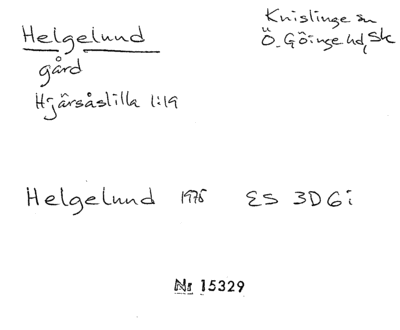 Helgelund
gård
Hjärsåslilla 1:19
Knislinge sn
Ö. Göinge hd, Sk
Helgelund 1975 ES 3D6i
Nr 15329